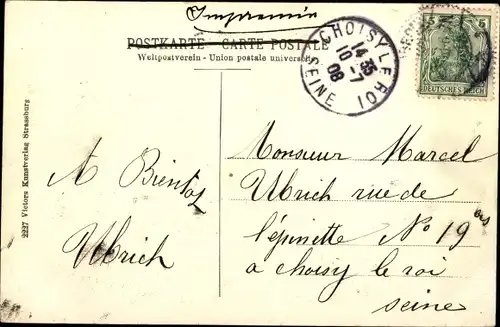 Imprimé
POSTKARTE - CARTE POSTALE
Weltpostverein - Union postale universelle
CHOISY LE ROI
14 35
10 - 7
08
SEINE
5 5
DEUTSCHES REICH
2227 Victors Kunstverlag Strassburg
A Bientôt
Ulrich
Monsieur Marcel
Ulrich rue de
l'épinette No 19 bis
a choisy le roi
seine